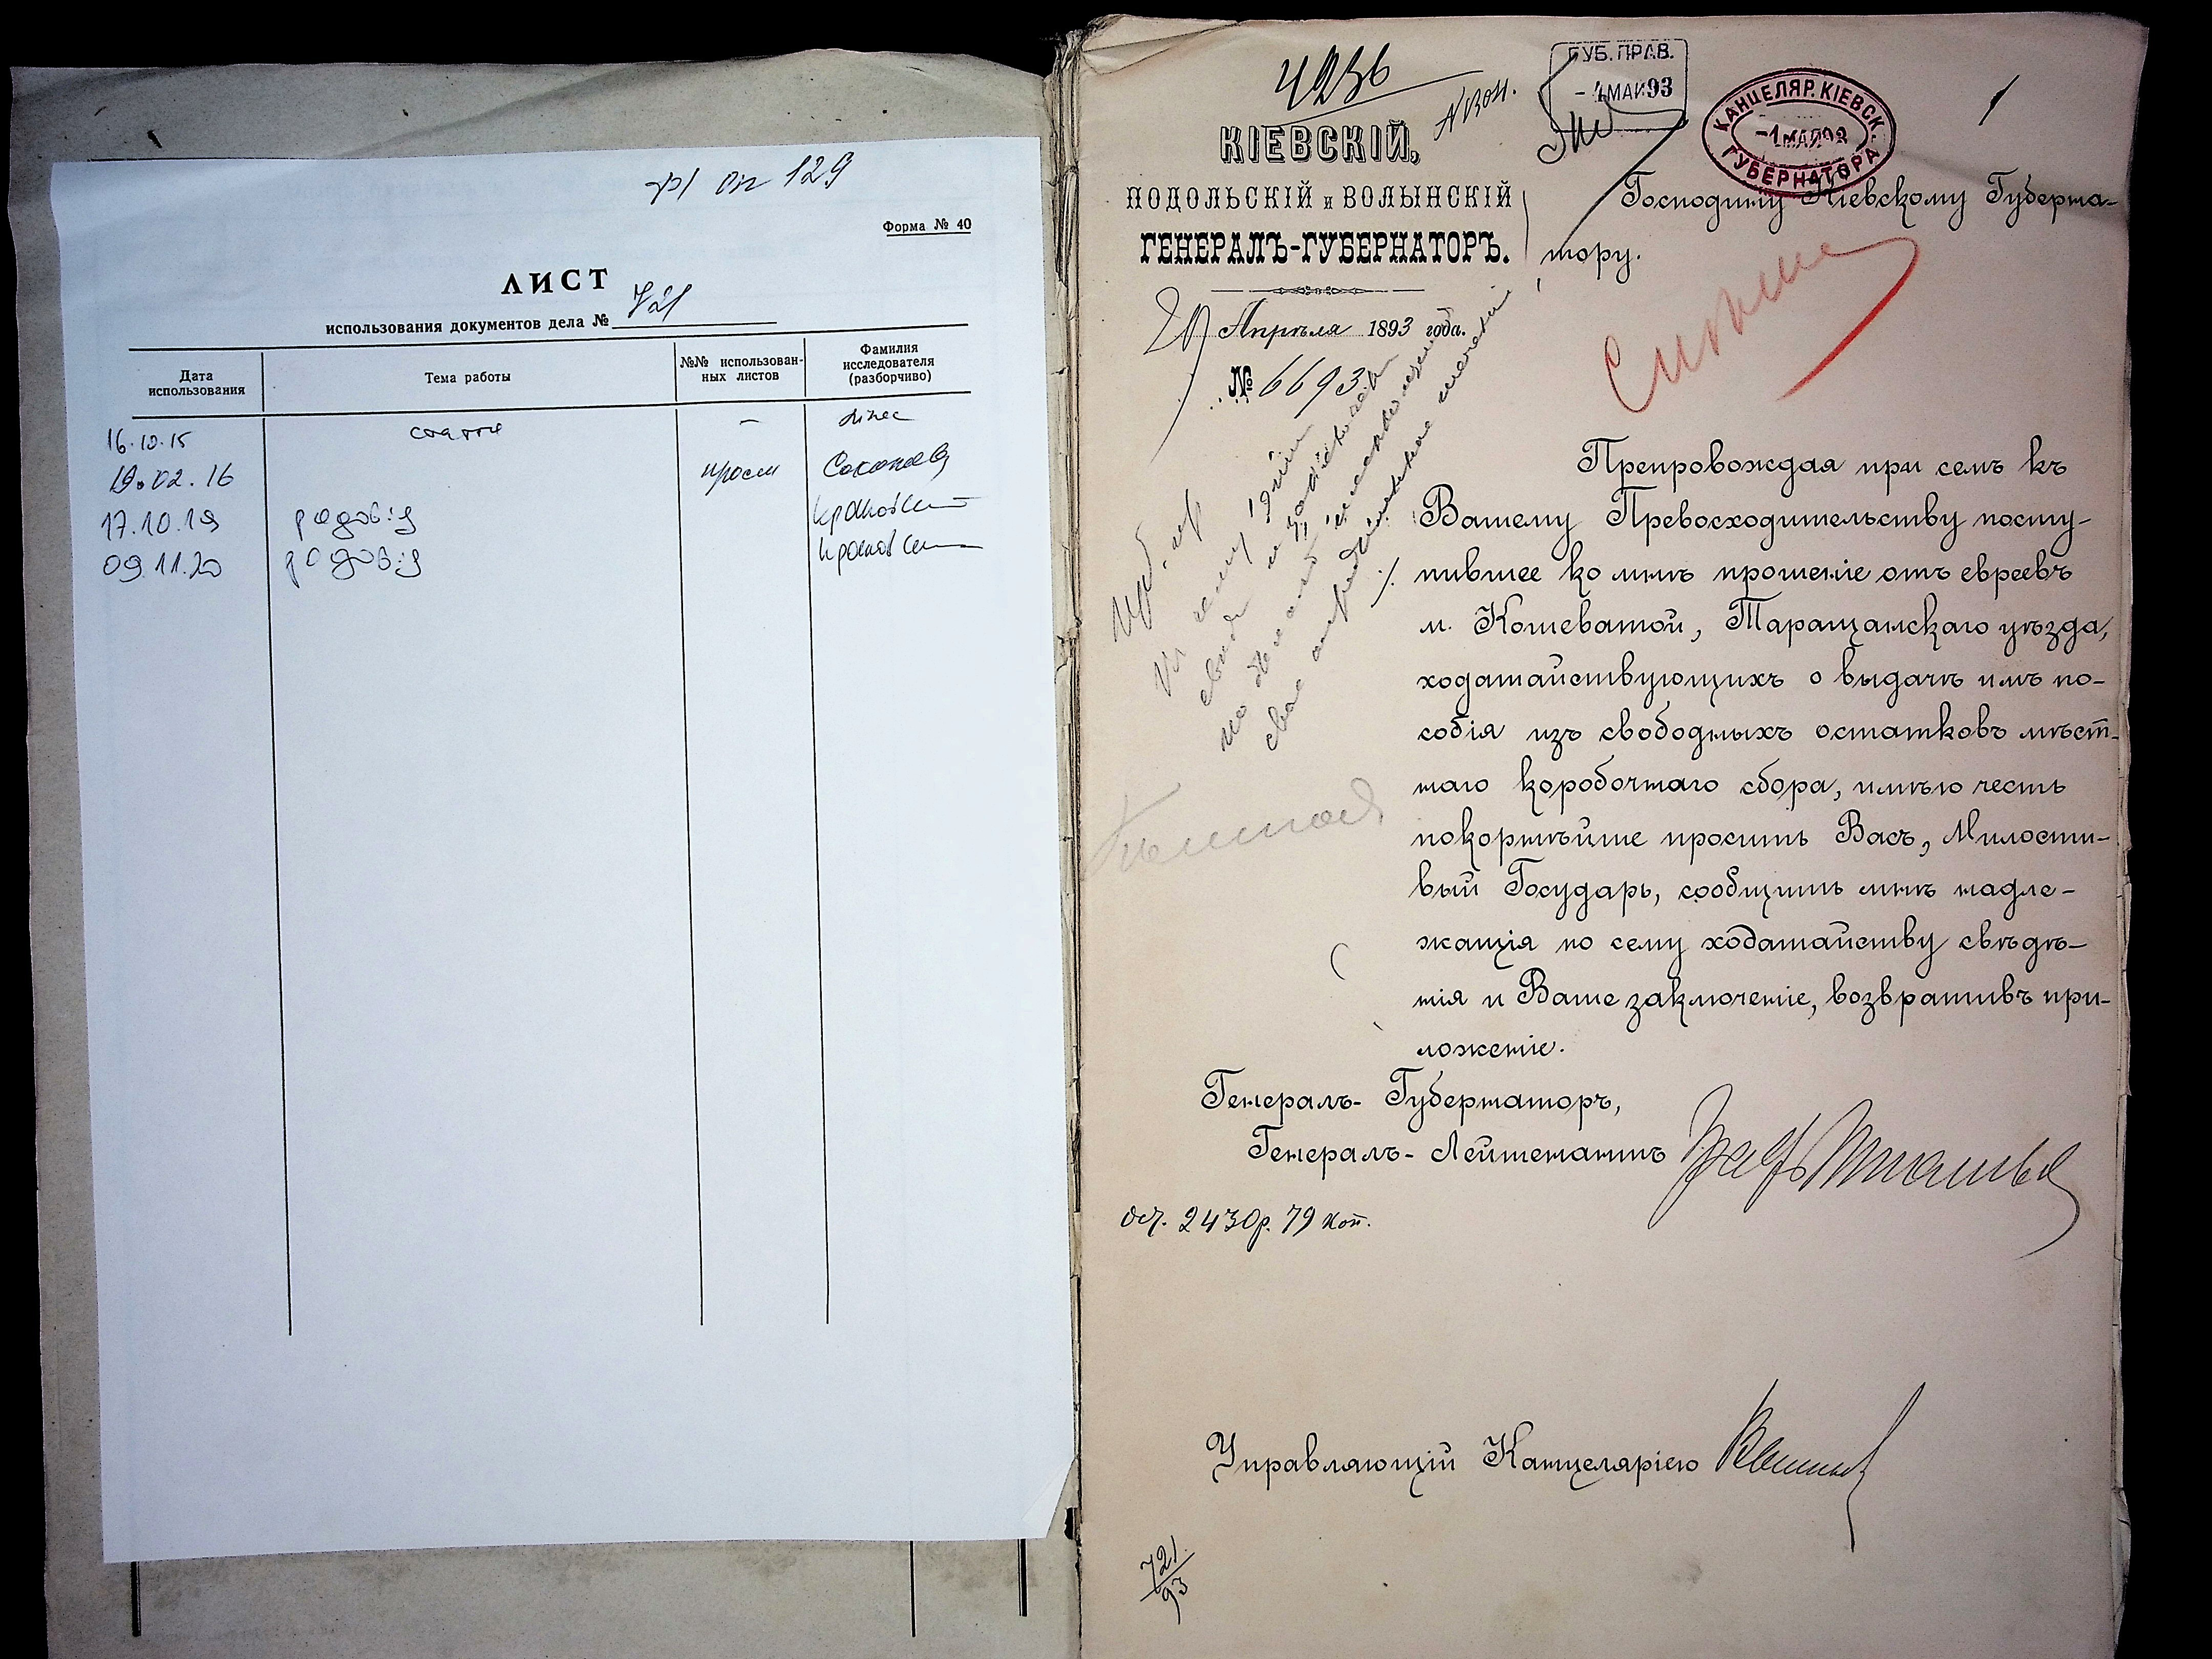 ф1 оп 129
Форма № 40
ЛИСТ
использования документов дела № 721
Дата использования
Тема работы
№№ использован-
ных листов
Фамилия
исследователя
(разборчиво)
16.10.15 стаття –
19.02.16 просм
17.10.19 родовід
09.11.20 родовід
4236
КІЕВСКІЙ,
ПОДОЛЬСКІЙ и ВОЛЫНСКІЙ
ГЕНЕРАЛЪ-ГУБЕРНАТОРЪ.
Апрѣля 1893 года.
№ 6693
ГУБ. ПРАВ.
МАИ 93
КАНЦЕЛЯР. КІЕВСК.
-1 МАЯ 93
ГУБЕРНАТОРА
1
Господину Кіевскому Губерна-
тору.
Препровождая при семъ къ
Вашему Превосходительству посту-
пившее ко мнѣ прошеніе отъ евреевъ
м. Кошеватой, Таращанскаго уѣзда,
ходатайствующихъ о выдачѣ имъ по-
собія изъ свободныхъ остатковъ мѣст-
наго коробочнаго сбора, имѣю честь
покорнѣйше просить Васъ, Милости-
вый Государь, сообщить мнѣ надле-
жащія по сему ходатайству свѣдѣ-
нія и Ваше заключеніе, возвративъ при-
ложеніе.
Генералъ-Губернаторъ,
Генералъ-Лейтенантъ Графъ Игнатьев
ост. 2430 р. 79 коп.
Управляющій Канцеляріею
721
93